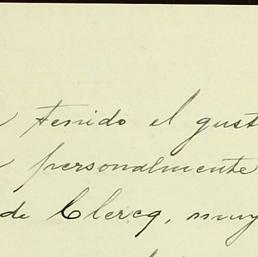 tenido el gust
personalmente
de Clercq, muy